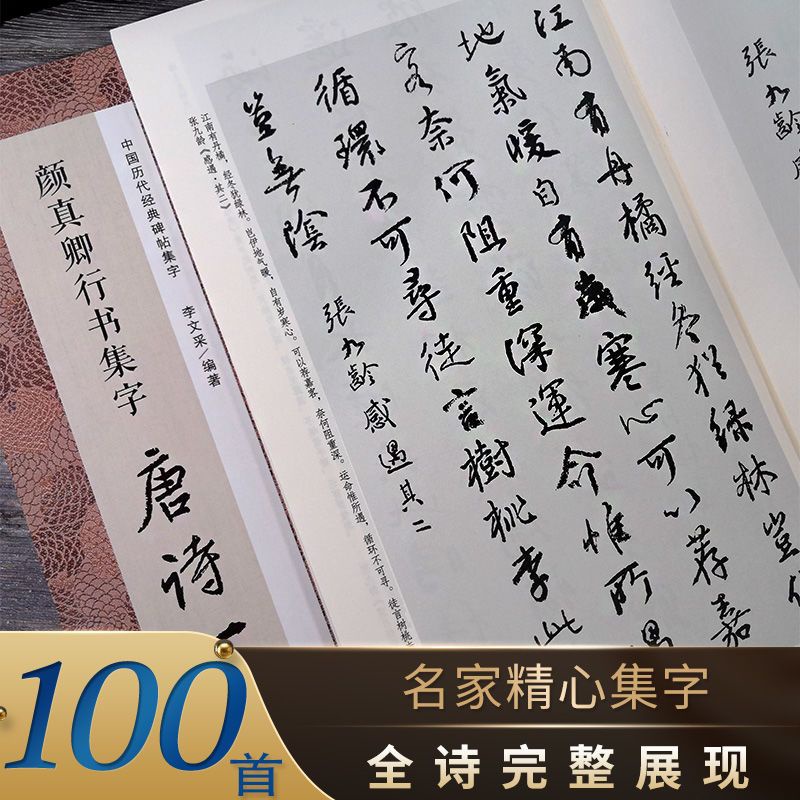 張九齡
江南有丹橘經冬猶綠林豈
地氣暖自有歲寒心可以荐嘉
客奈何阻重深運命惟所遇
循環不可尋徒言樹桃李此
豈無陰
張九齡感遇其二
江南有丹橘，经冬犹绿林。岂伊地气暖，自有岁寒心。可以荐嘉客，奈何阻重深。运命惟所遇，循环不可寻。徒言树桃
张九龄《感遇·其二》
中国历代经典碑帖集字 李文采/编著
颜真卿行书集字
唐诗
100首
名家精心集字
全诗完整展现